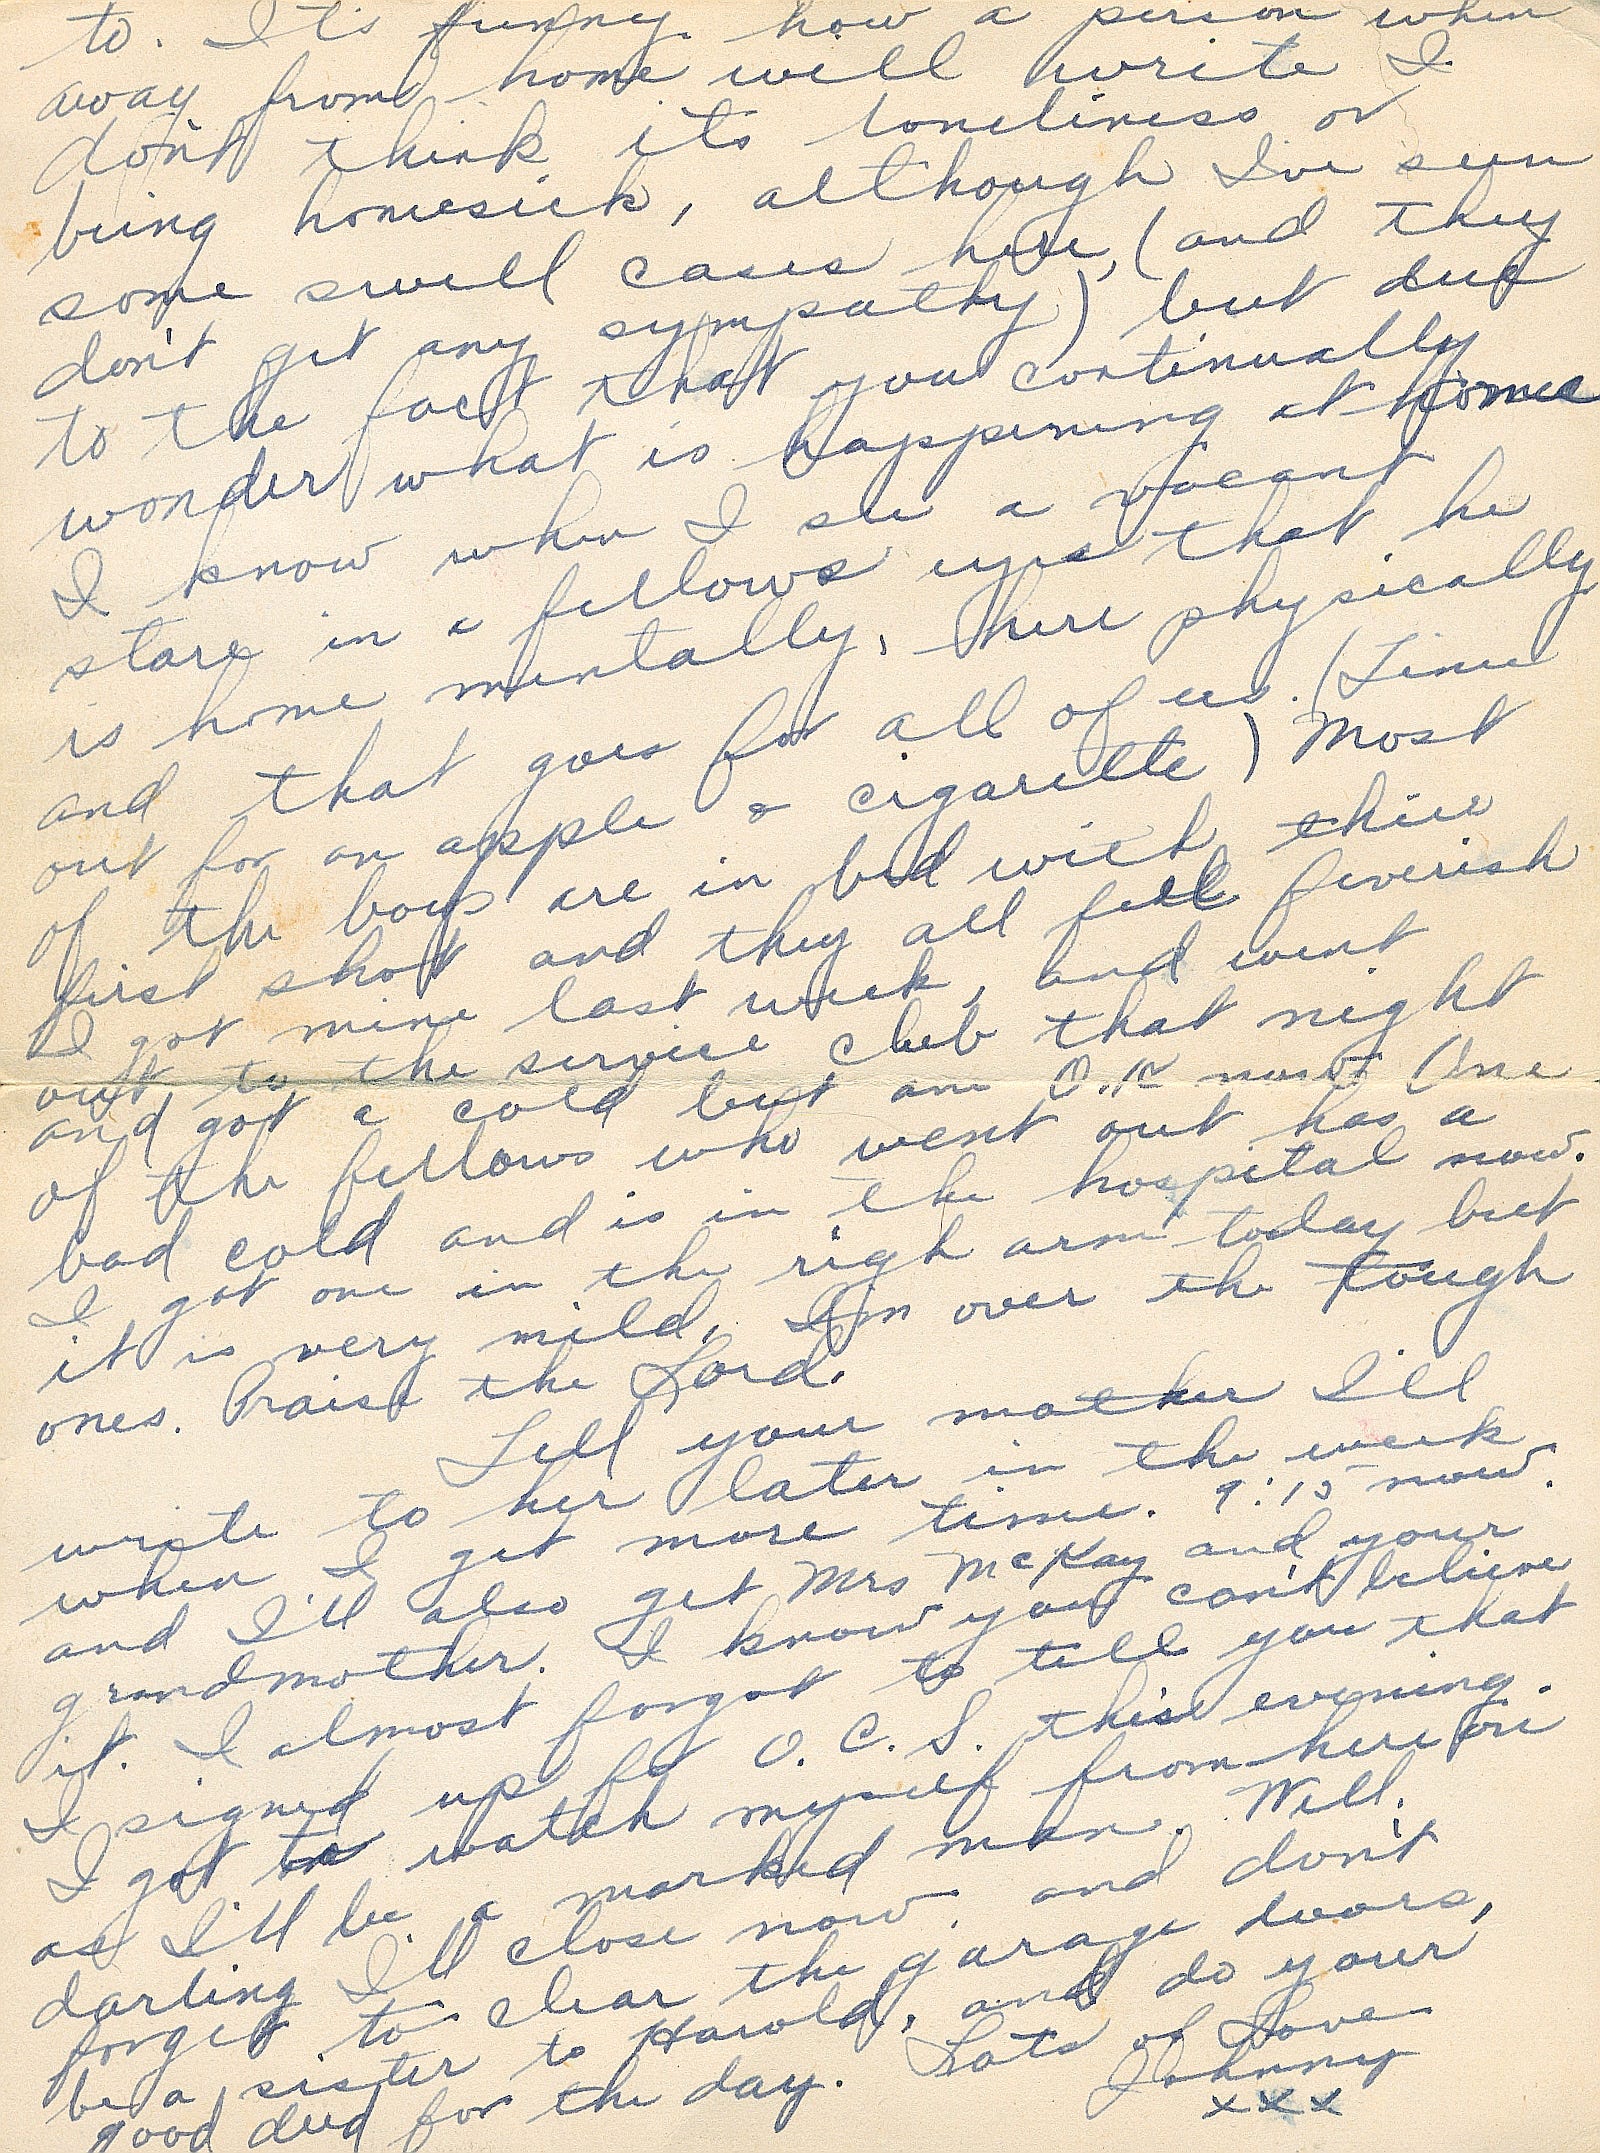 to. It's funny how a person when
away from home will write I
don't think its loneliness or
being homesick, although I've seen
some swell cases here, (and they
don't get any sympathy) but due
to the fact that you continually
wonder what is happening at home
I know when I see a vacant
stare in a fellows eyes that he
is home mentally, here physically
and that goes for all of us. (Time
out for an apple & cigarette) Most
of the boys are in bed with their
first shot and they all feel feverish
I got mine last week, and went
out to the service club that night
and got a cold but am O.K now. One
of the fellows who went out has a
bad cold and is in the hospital now.
I got one in the righ arm today but
it is very mild, I'm over the tough
ones. Praise the Lord.
Tell your mother I'll
write to her later in the week
when I get more time. 9:15 now.
and I'll also get Mrs McKay and your
grandmother. I know you can't believe
it. I almost forgot to tell you that
I signed up for O.C.S. this evening.
I got to watch myself from here on
as I'll be a marked man. Well.
darling I'll close now, and don't
forget to clear the garage doors,
be a sister to Harold, and do your
good deed for the day. Lots of Love
Johnny
xxx